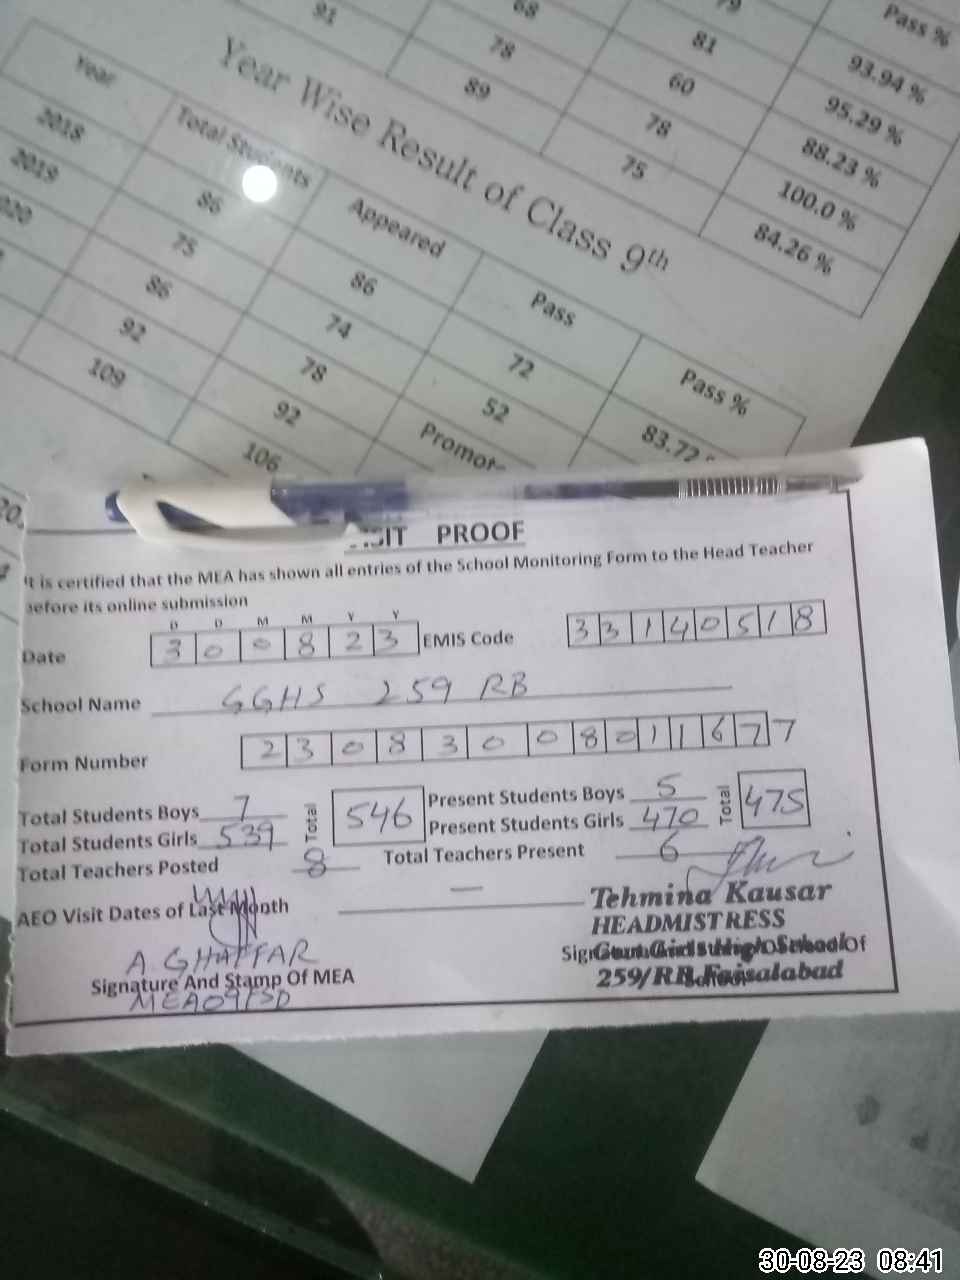 91 68 79 Pass %
78 81 93.94 %
89 60 95.29 %
78 88.23 %
75 100.0 %
84.26 %
Year Wise Result of Class 9th
Year Total Students Appeared Pass Pass %
2018 86 86 72 83.72
2019 75 74 52
020 86 78 Promot
92 92
109 106
PROOF
It is certified that the MEA has shown all entries of the School Monitoring Form to the Head Teacher
before its online submission
D D M M Y Y
Date 3 0 0 8 2 3 EMIS Code 3 3 1 4 0 5 1 8
School Name GGHS 259 RB
Form Number 2 3 0 8 3 0 0 8 0 1 1 6 7 7
Total Students Boys 7 Total 546 Present Students Boys 5 Total 475
Total Students Girls 539 Present Students Girls 470
Total Teachers Posted 8 Total Teachers Present 6
AEO Visit Dates of Last Month —
Tehmina Kausar
HEADMISTRESS
A. GHAFFAR
Govt. Girls High School
Signature And Stamp Of MEA
259/RB, Faisalabad
MEA09FSD
30-08-23 08:41